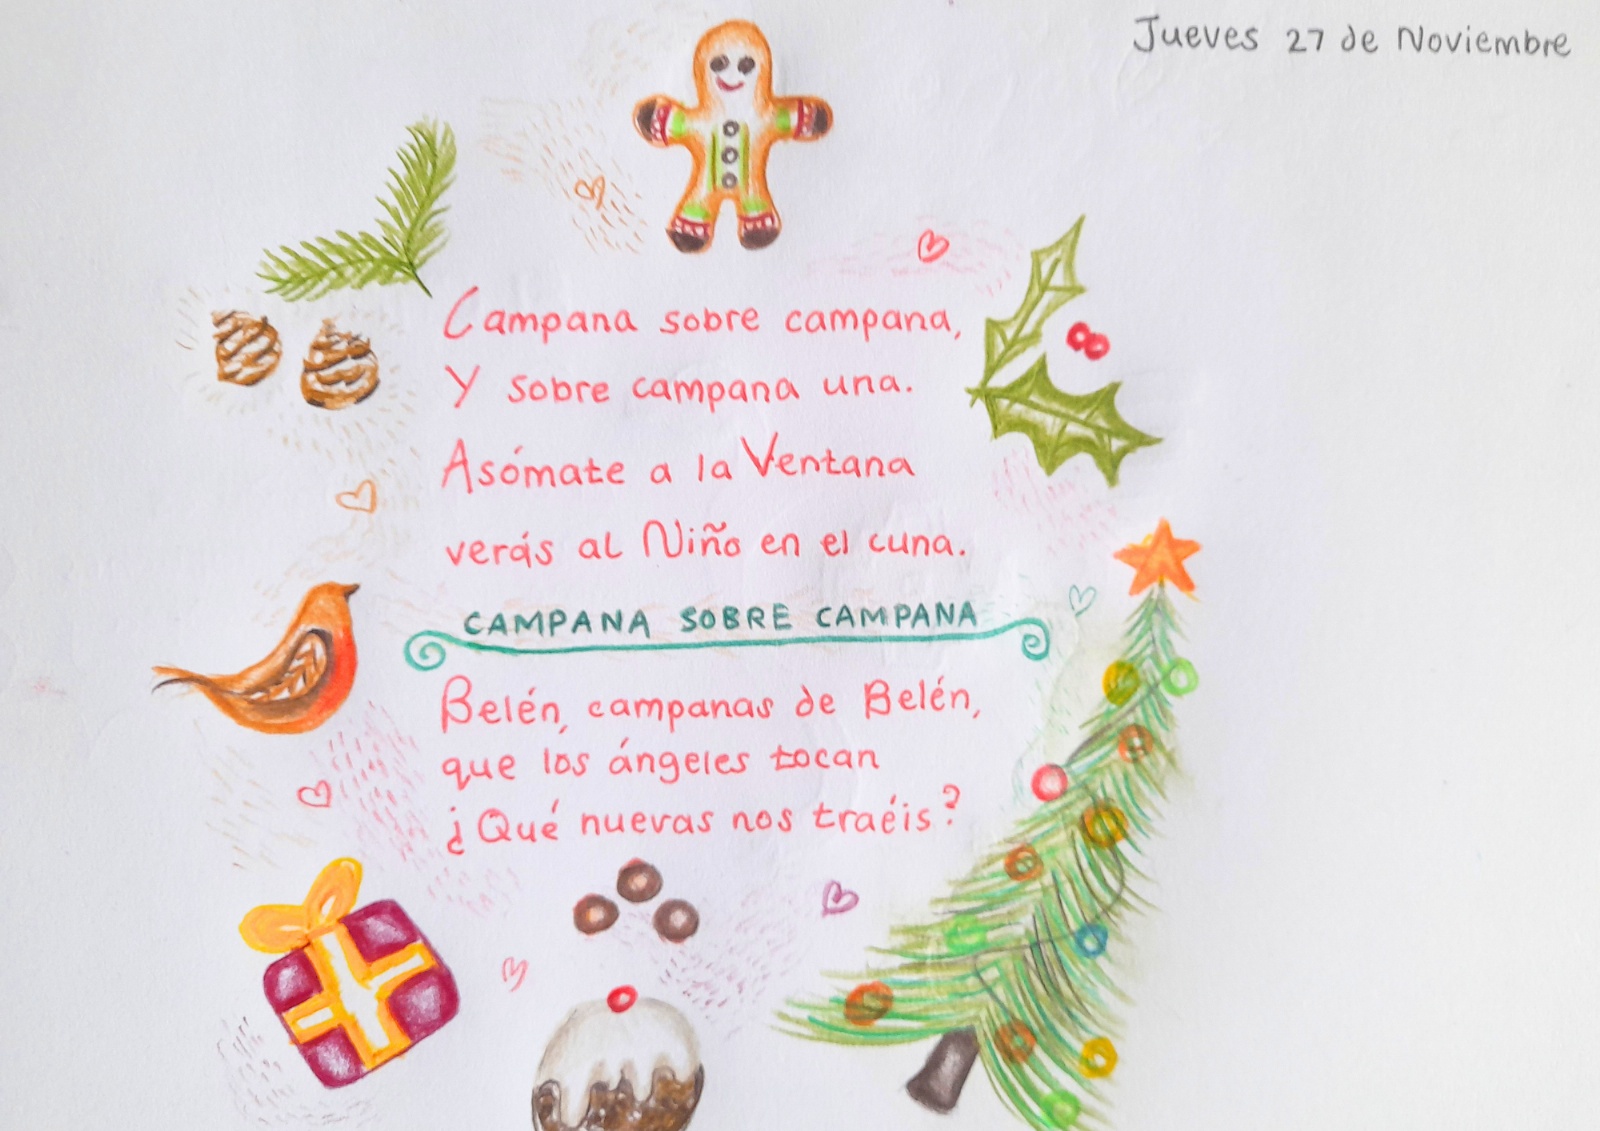 Jueves 27 de Noviembre
Campana sobre campana,
Y sobre campana una.
Asómate a la Ventana
verás al Niño en el cuna.
CAMPANA SOBRE CAMPANA
Belén, campanas de Belén,
que los ángeles tocan
¿Qué nuevas nos traéis?